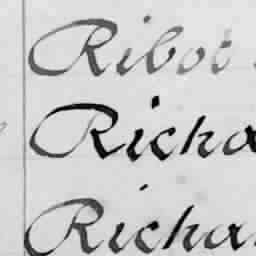 Ribot
Richa
Richa